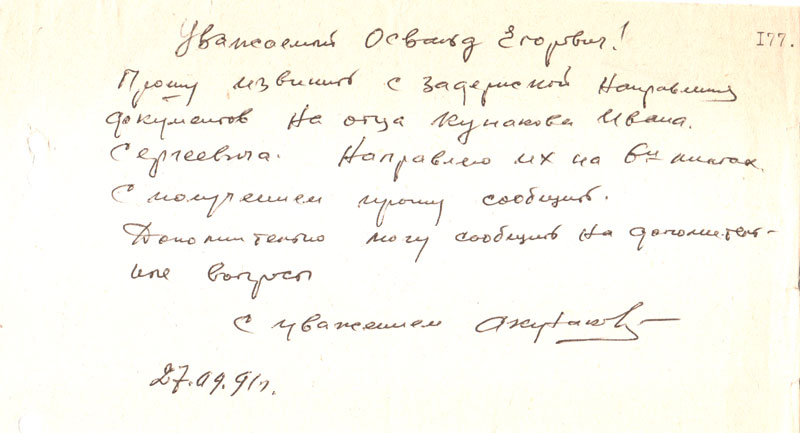 Уважаемый Освальд Егорович!
177.
Прошу извинить с задержкой направления
документов на отца Кунакова Ивана
Сергеевича. Направляю их на 6ти листах.
С получением прошу сообщить.
Дополнительно могу сообщить на дополнитель-
ные вопросы
С уважением АКунаков
27.09.91г.